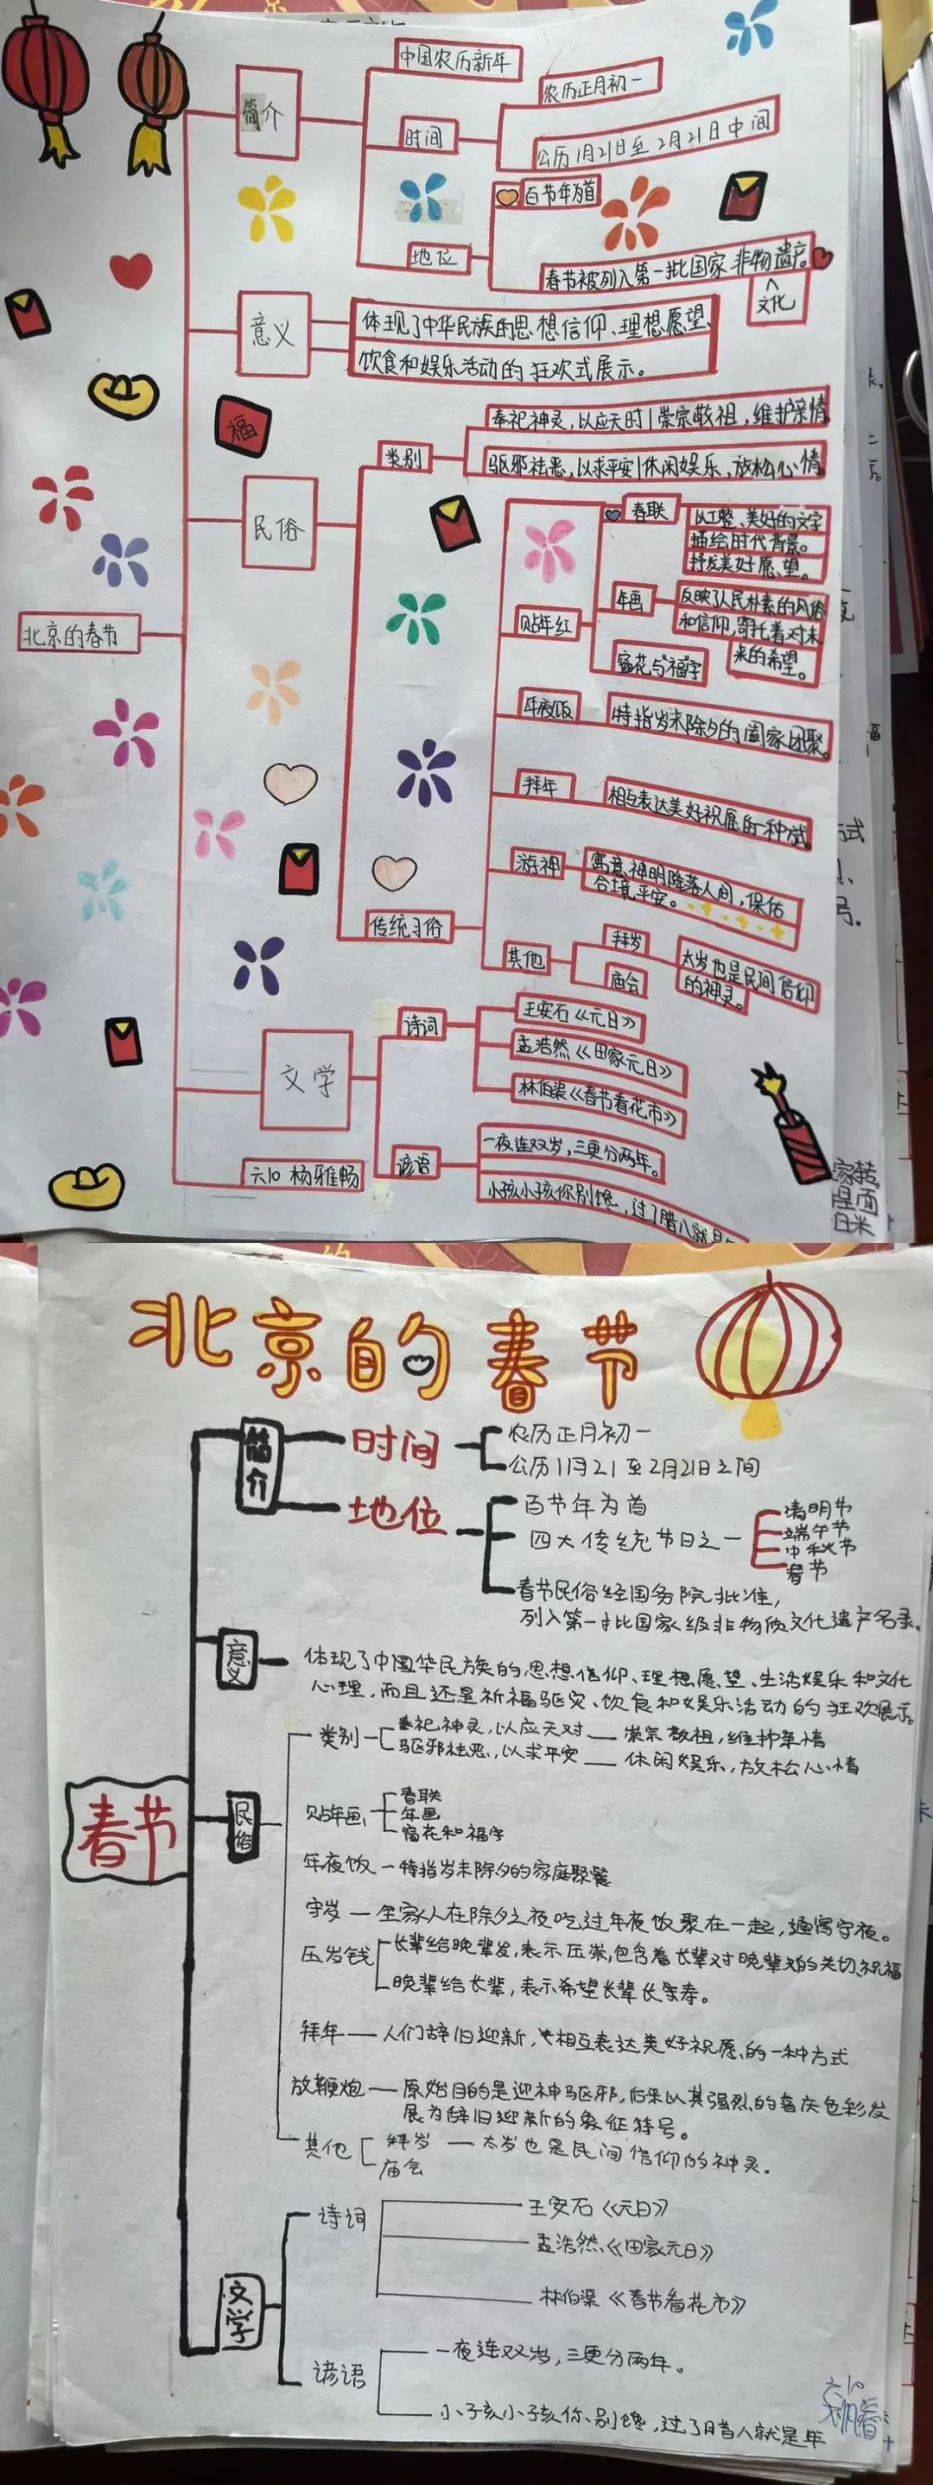 简介
中国农历新年
时间
农历正月初一
公历1月21日至2月21日中间
地位
百节年为首
春节被列入第一批国家非物遗产。
文化
意义
体现了中华民族的思想信仰、理想愿望、
饮食和娱乐活动的狂欢式展示。
北京的春节
民俗
福
类别
奉祀神灵,以应天时|崇宗敬祖,维护亲情
驱邪祛恶,以求平安|休闲娱乐,放松心情
传统习俗
贴年红
春联
以工整、美好的文字
描绘时代背景。
抒发美好愿望。
年画
反映了人民朴素的风俗
和信仰,寄托着对未
来的希望。
窗花与"福"字
年夜饭
特指岁末除夕的阖家团聚。
拜年
相互表达美好祝愿的一种方式。
游神
寓意神明降落人间,保佑
合境平安。
其他
拜岁
太岁也是民间信仰
的神灵。
庙会
文学
诗词
王安石《元日》
孟浩然《田家元日》
林伯渠《春节看花市》
谚语
一夜连双岁,三更分两年。
小孩小孩你别馋,过了腊八就是
六10 杨雅畅
北京的春节
春节
简介
时间
农历正月初一
公历11月21至2月21日之间
地位
百节年为首
四大传统节日之一
清明节
端午节
中秋节
春节
春节民俗经国务院批准,
列入第一批国家级非物质文化遗产名录。
意义
体现了中国华民族的思想信仰、理想愿望、生活娱乐和文化
心理,而且还是祈福驱灾、饮食和娱乐活动的狂欢展示。
民俗
类别
奉祀神灵,以应天对——崇宗敬祖,维护亲情
驱邪祛恶,以求平安——休闲娱乐,放松心情
贴年画
春联
年画
窗花和福字
年夜饭—特指岁末除夕的家庭聚餐
守岁—全家人在除夕之夜吃过年夜饭聚在一起,通宵守夜。
压岁钱
长辈给晚辈发,表示压祟,包含着长辈对晚辈的关切祝福
晚辈给长辈,表示希望长辈长寿。
拜年——人们辞旧迎新,相互表达美好祝愿的一种方式
放鞭炮—原始目的是迎神驱邪,后来以其强烈的喜庆色彩发
展为辞旧迎新的象征符号。
其他
拜岁—太岁也是民间信仰的神灵.
庙会
文学
诗词
王安石《元日》
孟浩然《田家元日》
林伯渠《春节看花市》
谚语
一夜连双岁,三更分两年。
小子孩小孩你别馋,过了腊八就是年